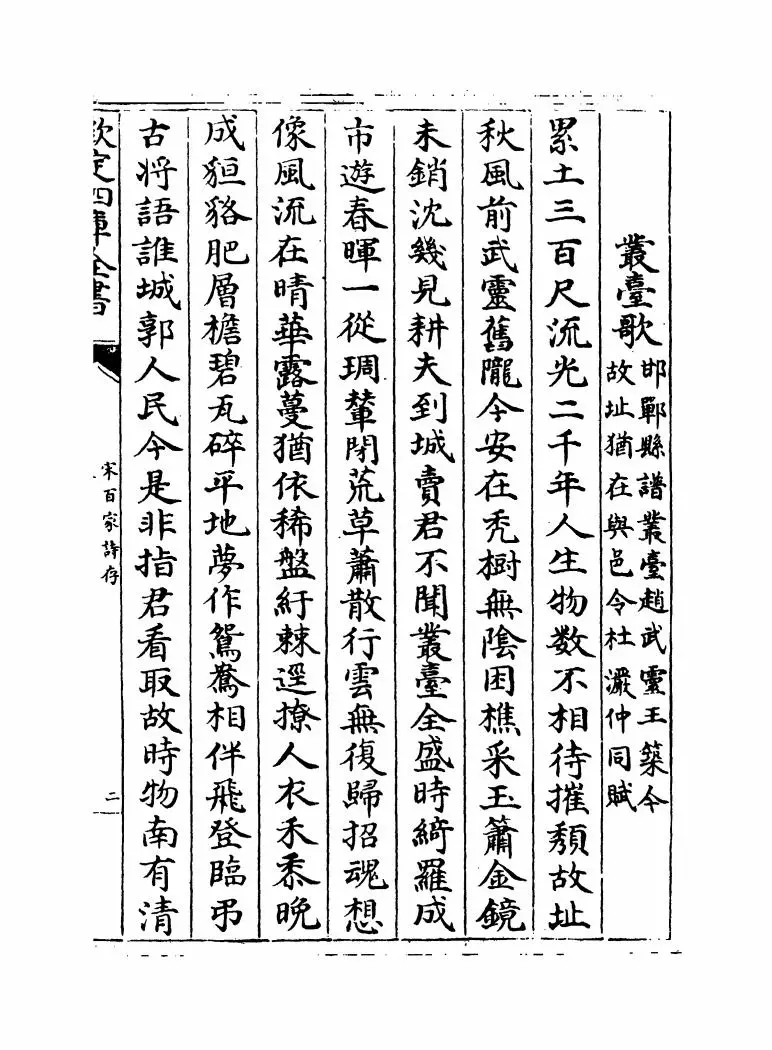 叢臺歌 邯鄲縣譜叢臺趙武靈王築今
故址猶在與邑令杜巖仲同賦
累土三百尺流光二千年人生物数不相待摧頽故址
秋風前武靈舊隴今安在禿樹無陰困樵采玉簫金鏡
未銷沈幾見耕夫到城賣君不聞叢臺全盛時綺羅成
市遊春暉一從琱輦閉荒草蕭散行雲無復歸招魂想
像風流在晴華露蔓猶依稀盤紆棘逕撩人衣禾黍晩
成貆貉肥層檐碧瓦碎平地夢作鴛鴦相伴飛登臨弔
古將語誰城郭人民今是非指君看取故時物南有清
欽定四庫全書
宋百家詩存
二